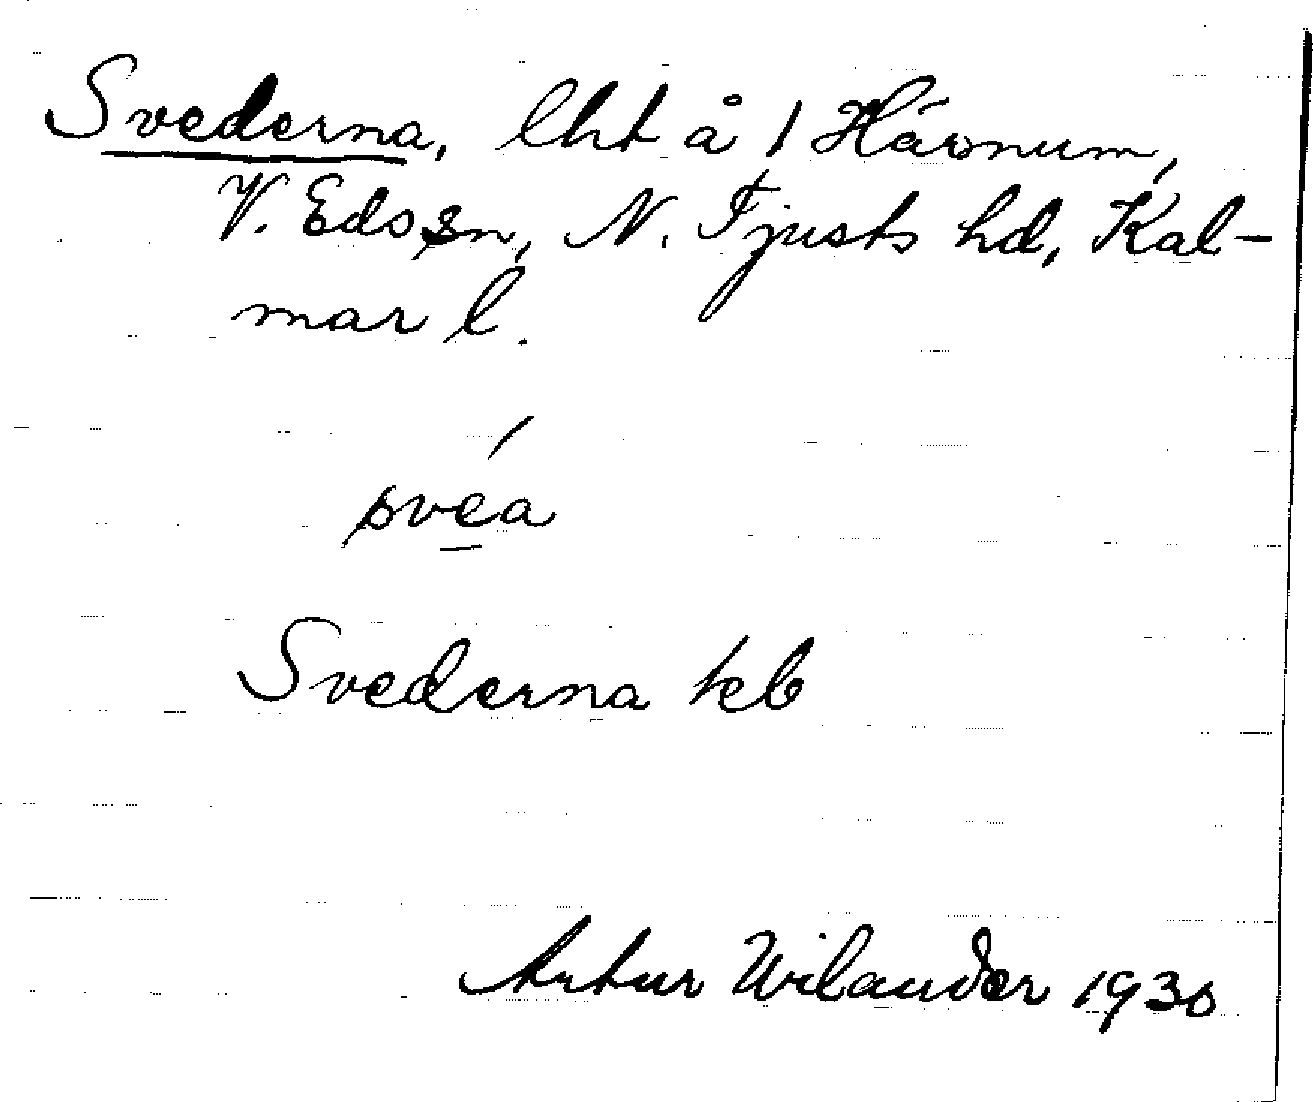 Svederna, lht å 1 Hävnum,
V. Eds sn, N. Tjusts hd, Kal-
mar l.
svea
Svederna keb
Artur Wilander 1930